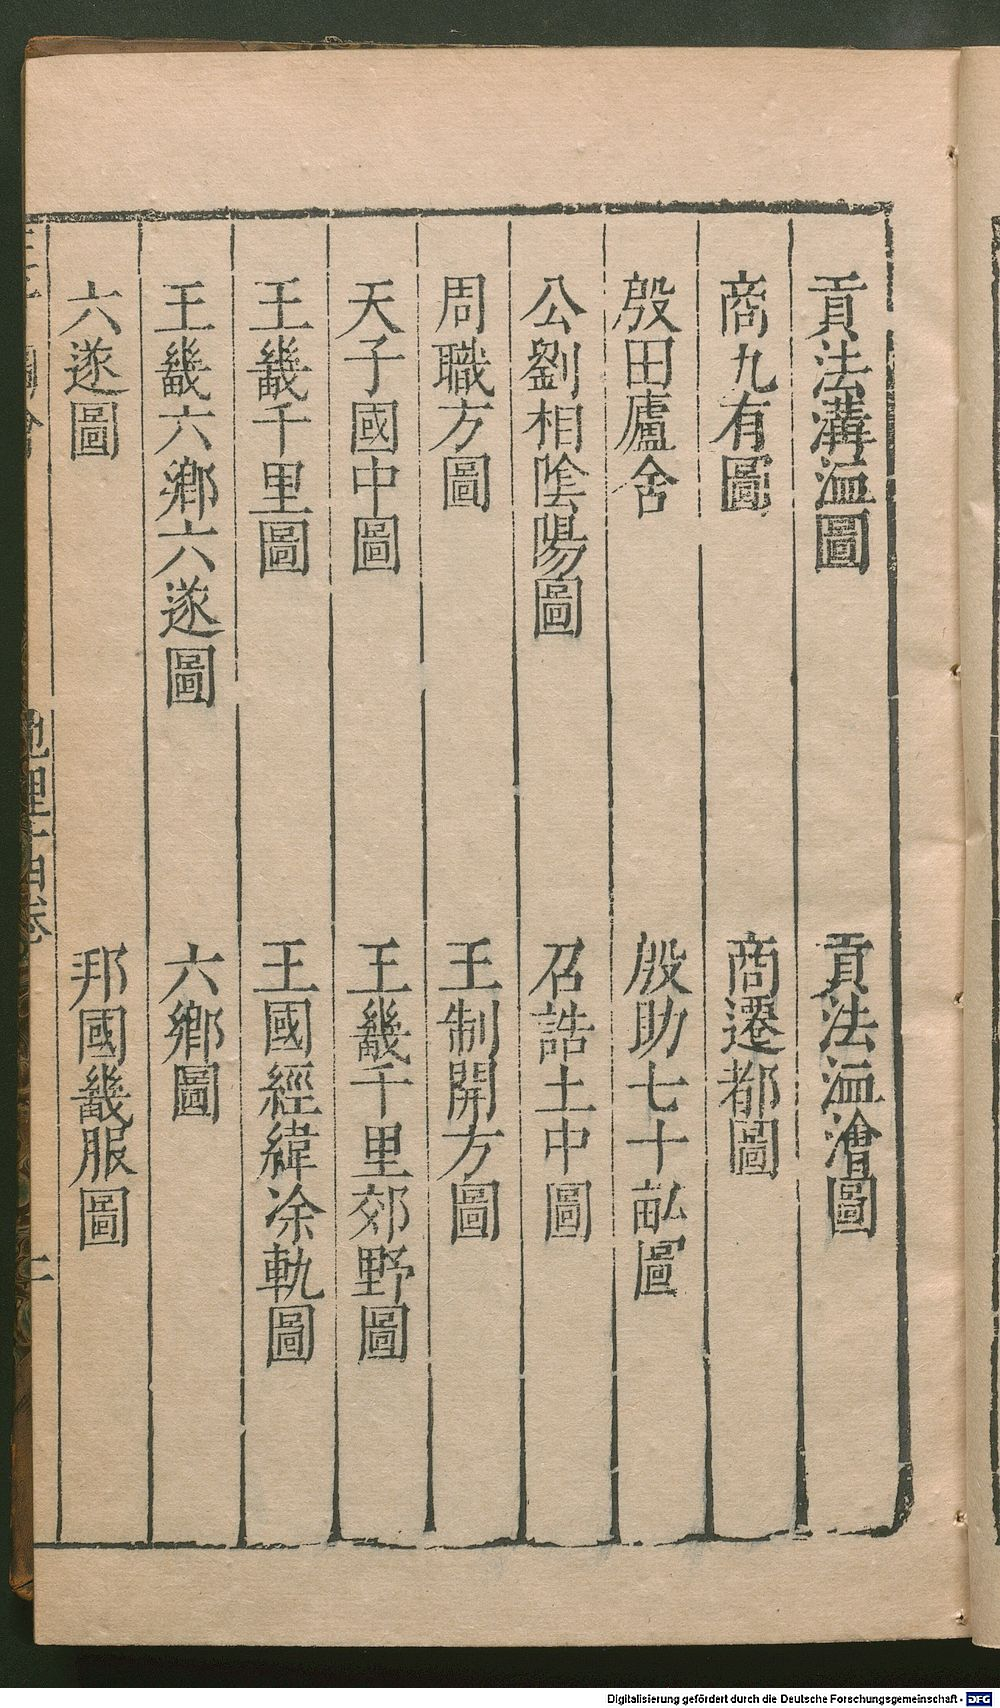 貢法溝洫圖　貢法洫澮圖
商九有圖　商遷都圖
殷田廬舍　殷助七十畝圖
公劉相陰陽圖　召誥土中圖
周職方圖　王制開方圖
天子國中圖　王畿千里郊野圖
王畿千里圖　王國經緯涂軌圖
王畿六鄉六遂圖　六鄉圖
六遂圖　邦國畿服圖
地理十四卷
Digitalisierung gefördert durch die Deutsche Forschungsgemeinschaft - DFG